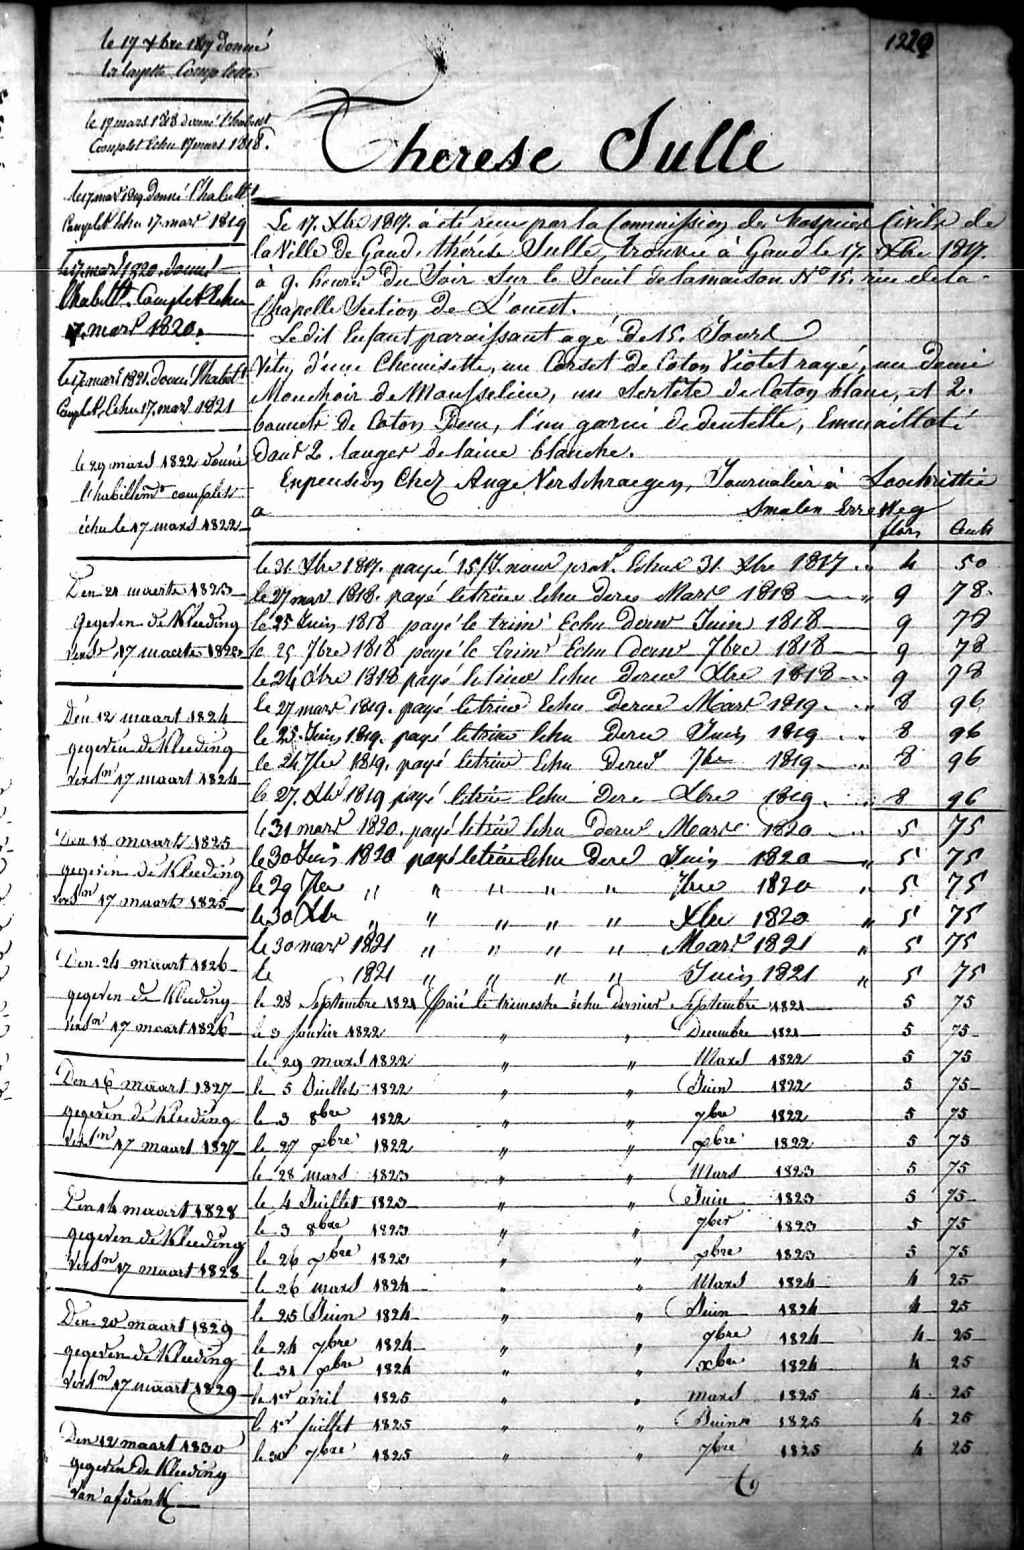 1229
le 17 xbre 1817 donné
la layette Complette
le 17 mars 1818 donné l'habillt
Complet Echu 17 mars 1818.
le 17 mars 1819 donné l'habillt
Complet Echu 17 mars 1819
le 17 mars 1820 donné
l'habillt. Complet Echu
17 mars 1820.
le 17 mars 1821 donné l'habillt
Complet, Echu 17 mars 1821
le 29 mars 1822 donné
l'habillemt complet
échu le 17 mars 1822
Den 21 maerte 1823
gegeven de Kleeding
verst 17 maerte 1823
Den 12 maart 1824
gegeven de Kleeding
versn 17 maart 1824
Den 18 maart 1825
gegeven de Kleeding
versn 17 maart 1825
Den 24 maart 1826
gegeven de Kleeding
versn 17 maart 1826
Den 16 maart 1827
gegeven de Kleeding
versn 17 maart 1827
Den 14 maart 1828
gegeven de Kleeding
versn 17 maart 1828
Den 20 maart 1829
gegeven de Kleeding
versn 17 maart 1829
Den 12 maart 1830
gegeven de Kleeding
van afdank
Therese Sulle
Le 17. Xbre 1817. a été reçue par la Commission des Hospices Civils de
la Ville de Gand, thérése Sulle, trouvée à Gand le 17. Xbre 1817.
à 9. heures du Soir sur le Seuil de la maison No 15. rue de la
Chapelle Section de L'ouest.
Le dit Enfant paraissant agé de 15. Jours
Vêtu d'une Chemisette, un Corset de Coton Violet rayé, un Demi
Mouchoir de Mousseline, un Sertête de Coton blanc, et 2.
bonnets de Coton, l'un garni de dentelle, Emmailloté
dans 2. langes de laine blanche.
En pension Chez Ange Verschraegen, Journalier à Loochristie
a Smalen Erre Weg
flors Cents
le 31 Xbre 1817. payé 15/7. nour prov. Echus 31. Xbre 1817 4 50
le 27 mar 1818. payé le trim Echu dere Mars 1818 9 78
le 25 Juin 1818 payé le trim Echu dernr Juin 1818 9 78
le 25 7bre 1818 payé le trim Echu dernr 7bre 1818 9 78
le 24 Xbre 1818 payé le trim Echu dernr Xbre 1818 9 78
le 27 mars 1819. payé le trim Echu dernr Mars 1819. 8 96
le 25. Juin 1819. payé le trim Echu dernr Juin 1819 8 96
le 24 7bre 1819. payé le trim Echu dernr 7bre 1819 8 96
le 27. Xbre 1819 payé le trim Echu dere Xbre 1819. 8 96
le 31 mars 1820. payé le trim Echu dernr Mars 1820 5 75
le 30 Juin 1820 payé le trim Echu dere Juin 1820 " 5 75
le 29 7bre " " " " " 7bre 1820 " 5 75
le 30 Xbre " " " " " Xbre 1820 " 5 75
le 30 mars 1821 " " " " Mars 1821 " 5 75
le 1821 " " " " Juin 1821 " 5 75
le 28 Septembre 1821 Paié le trimestre échu dernier Septembre 1821 5 75
le 3 Janvier 1822 " " Decembre 1821 5 75
le 29 mars 1822 " " Mars 1822 5 75
le 5 Juillet 1822 " " Juin 1822 5 75
le 3 8bre 1822 " " 7bre 1822 5 75
le 27 xbre 1822 " " xbre 1822 5 75
le 28 mars 1823 " " Mars 1823 5 75
le 4 Juillet 1823 " " Juin 1823 5 75
le 3 8bre 1823 " " 7bre 1823 5 75
le 26 xbre 1823 " " xbre 1823 5 75
le 26 mars 1824 " " Mars 1824 4 25
le 25 Juin 1824 " " Juin 1824 4 25
le 24 7bre 1824 " " 7bre 1824 4 25
le 31 xbre 1824 " " xbre 1824 4 25
le 1er avril 1825 " " mars 1825 4 25
le 1er juillet 1825 " " Juin 1825 4 25
le 30 7bre 1825 " " 7bre 1825 4 25